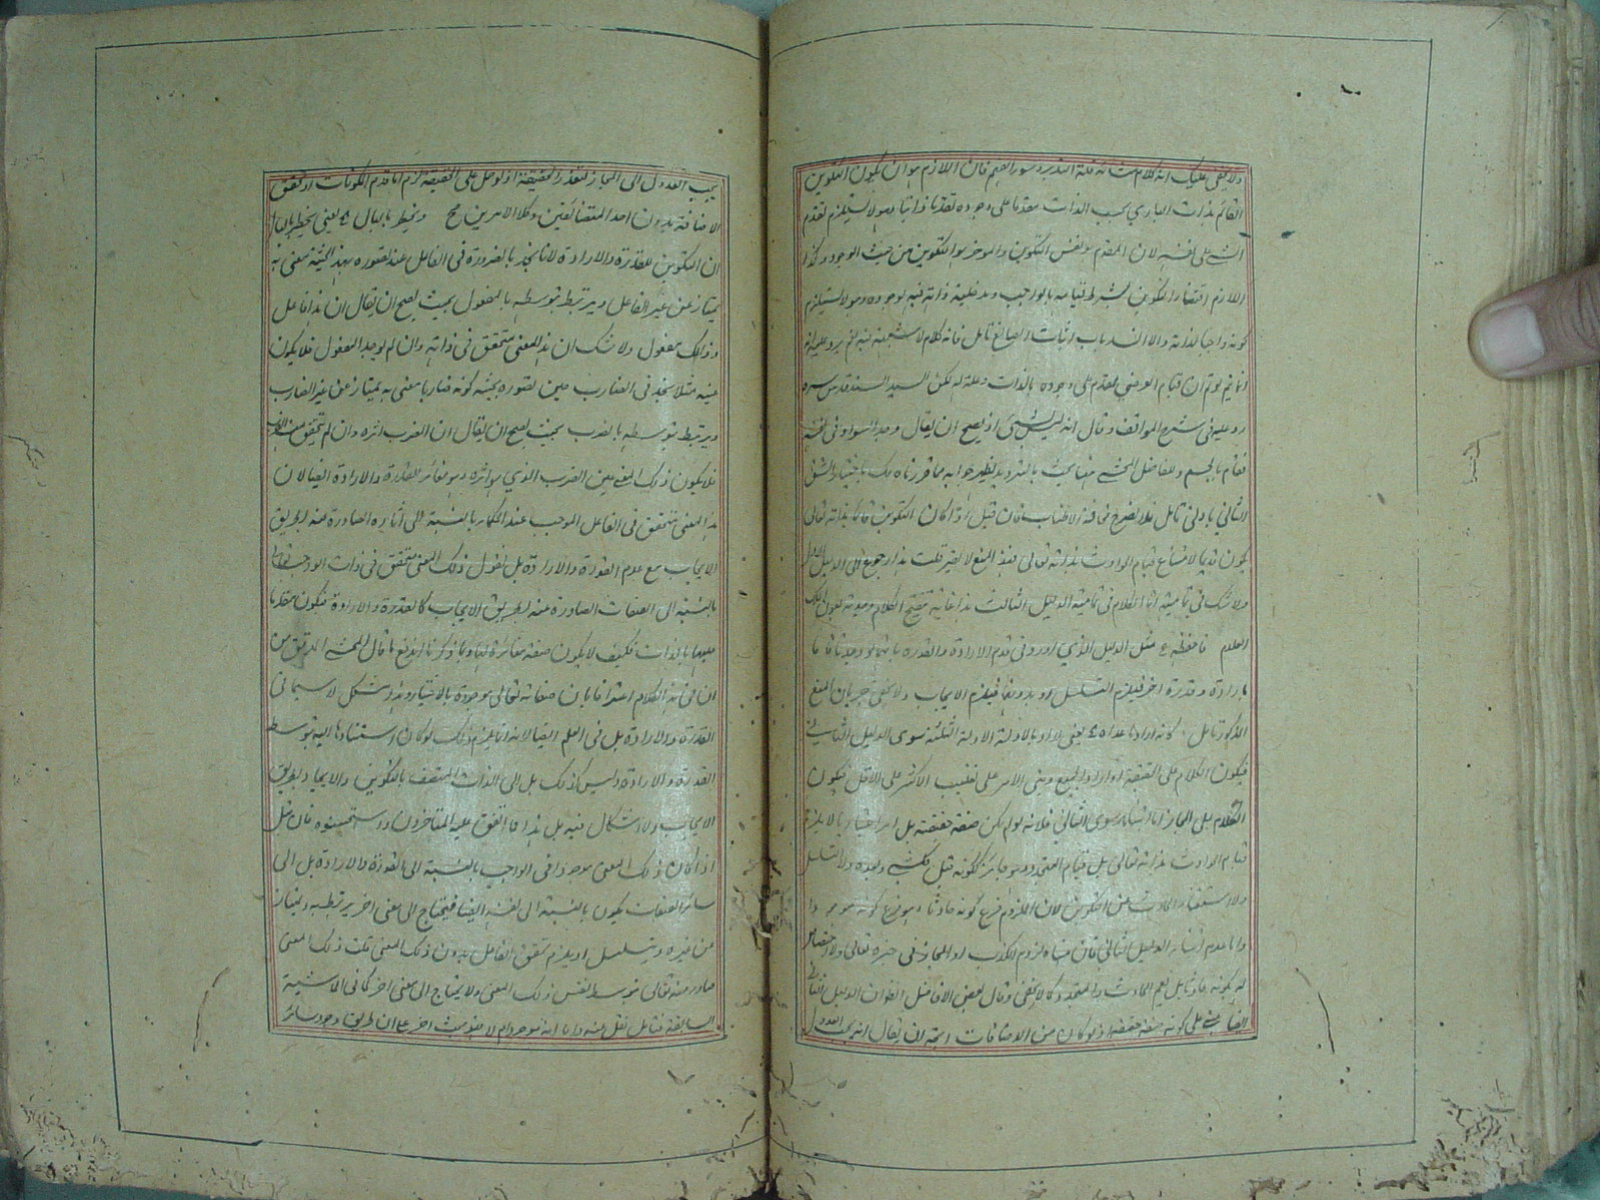 ولا يخفى عليك انه كلام منشأه قلة التدبر وسوء الفهم فان اللازم هو ان يكون التكوين
القائم بذات الباري بحسب الذات مقدما على وجوده تقدما ذاتيا وهو لا يستلزم تقدم
الشي على نفسه لان المقدم هو نفس التكوين والموخر هو التكوين من حيث الوجود وكذا
اللازم اقتضاء التكوين بشرط قيامه بالواجب ومدخلية ذاته فيه لوجوده وهو لا يستلزم
كونه واجبا لذاته والا انسد باب اثبات الصانع تامل فانه كلام لا شبهة فيه نعم يرد عليه انه
انما يتم لو تم ان قيام العرض مقدم على وجوده بالذات وعلة له لكن السيد السند قدس سره
رد عليه في شرح المواقف وقال انه ليس بشيء اذ يصح ان يقال وجد السواد في نفسه
فقام بالجسم وللفاضل المحشي هنا بحث بالترديد يظهر جوابه مما قررناه لك باختيار الشق
الثاني بادنى تامل فلا نصرح مخافة الاطناب فان قيل اذا كان التكوين قائما بذاته تعالى
يكون قديما لامتناع قيام الحوادث بذاته تعالى فهذا المنع لا يضر قلت هذا رجوع الى الدليل الاول
ولا شك في تماميته انما الكلام في تمامية الدليل الثالث هذا غاية تنقيح الكلام وهدية بعون الملك
العلام فاحفظه مثل الدليل الذي اورد في قدم الارادة والقدرة بانهما لو حدثتا فاما
بارادة وقدرة اخرى فيلزم التسلسل او بدونهما فيلزم الايجاب ولا يخفى جريان المنع
المذكور تامل كانه اراد بما عداه يعني اراد بالادلة الادلة الثلثة سوى الدليل الثاني
فيكون الكلام على الحقيقة او اراد الجميع وبنى الامر على تغليب الاكثر على الاقل فيكون
الكلام على المجاز اما ابتناء ما سوى الثاني فلانه لو لم يكن صفة حقيقية بل امرا اعتباريا لا يلزم
قيام الحوادث بذاته تعالى بل قيام المتجدد وهو جائز ككونه قبل كل شي وبعده ولا التسلسل
ولا استغناء الحادث عن التكوين لان اللزوم فرع كونه حادثا وهو فرع كونه موجودا
واما عدم ابتناء الدليل الثاني فان مبناه لزوم الكذب او المجاز في خبره تعالى ولا اختصاص
له بكونه حادثا بل يعم الحادث والمتجدد كما لا يخفى وقال بعض الافاضل اقول ان الدليل الثاني
ايضا مبني على كونه صفة حقيقية اذ لو كان من الاضافات اتجه ان يقال انه يجب العدول
يجب العدول الى المجاز لتعذر الحقيقة اذ لو حمل على الحقيقة لزم اما قدم المكونات او تحقق
الاضافة بدون احد المتضائفين وكلا الامرين مح ويخطر بالبال يعني يخطر بالبال
ان التكوين غير القدرة والارادة لانا نجد بالضرورة في الفاعل عند تصوره بهذه الحيثية معنى به
يمتاز عن غير الفاعل ويرتبط بتوسطه بالمفعول بحيث يصح ان يقال ان هذا فاعل
وذاك مفعول ولا شك ان هذا المعنى متحقق في ذاته وان لم يوجد المفعول فلا يكون
عينه مثلا نجد في الضارب حين تصوره بحيثية كونه ضاربا معنى به يمتاز عن غير الضارب
ويرتبط بتوسطه بالضرب بحيث يصح ان يقال ان الضرب اثره وان لم يتحقق منه الضرب
فلا يكون ذلك المعنى عين الضرب الذي هو اثره وهو مغائر للقدرة والارادة ايضا لان
هذا المعنى متحقق في الفاعل الموجب عند الحكماء بالنسبة الى آثاره الصادرة عنه بطريق
الايجاب مع عدم القدرة والارادة بل نقول ذلك المعنى متحقق في ذات الواجب تعالى
بالنسبة الى الصفات الصادرة عنه بطريق الايجاب كالقدرة والارادة فيكون متقدما
عليهما بالذات فكيف لا يكون صفة مغائرة لهما وبما ذكرنا اندفع ما قال المحشي المدقق من
ان في هذا الكلام اعترافا بان صفاته تعالى موجودة بالاختيار وهو مشكل لا سيما في
القدرة والارادة بل في العلم ايضا لانه انما يلزم ذلك لو كان استنادها اليه بتوسط
القدرة والارادة وليس كذلك بل الى الذات المتصف بالتكوين والايجاد بطريق
الايجاب ولا اشكال فيه بل هذا مما اتفق عليه المتاخرون واستحسنوه فان قيل
اذا كان ذلك المعنى موجودا في الواجب بالنسبة الى القدرة والارادة بل الى
سائر الصفات يكون بالنسبة الى نفسه ايضا فيحتاج الى معنى اخر يرتبط به ويمتاز
عن غيره ويتسلسل او يلزم تحقق الفاعل بدون ذلك المعنى قلت ذلك المعنى
صادر عنه تعالى بتوسط نفس ذلك المعنى ولا يحتاج الى معنى اخر كما في الحاشية
السابقة فتامل نقل عنه واما انه موجود ام لا فهو بحث اخر على ان طريق وجود سائر